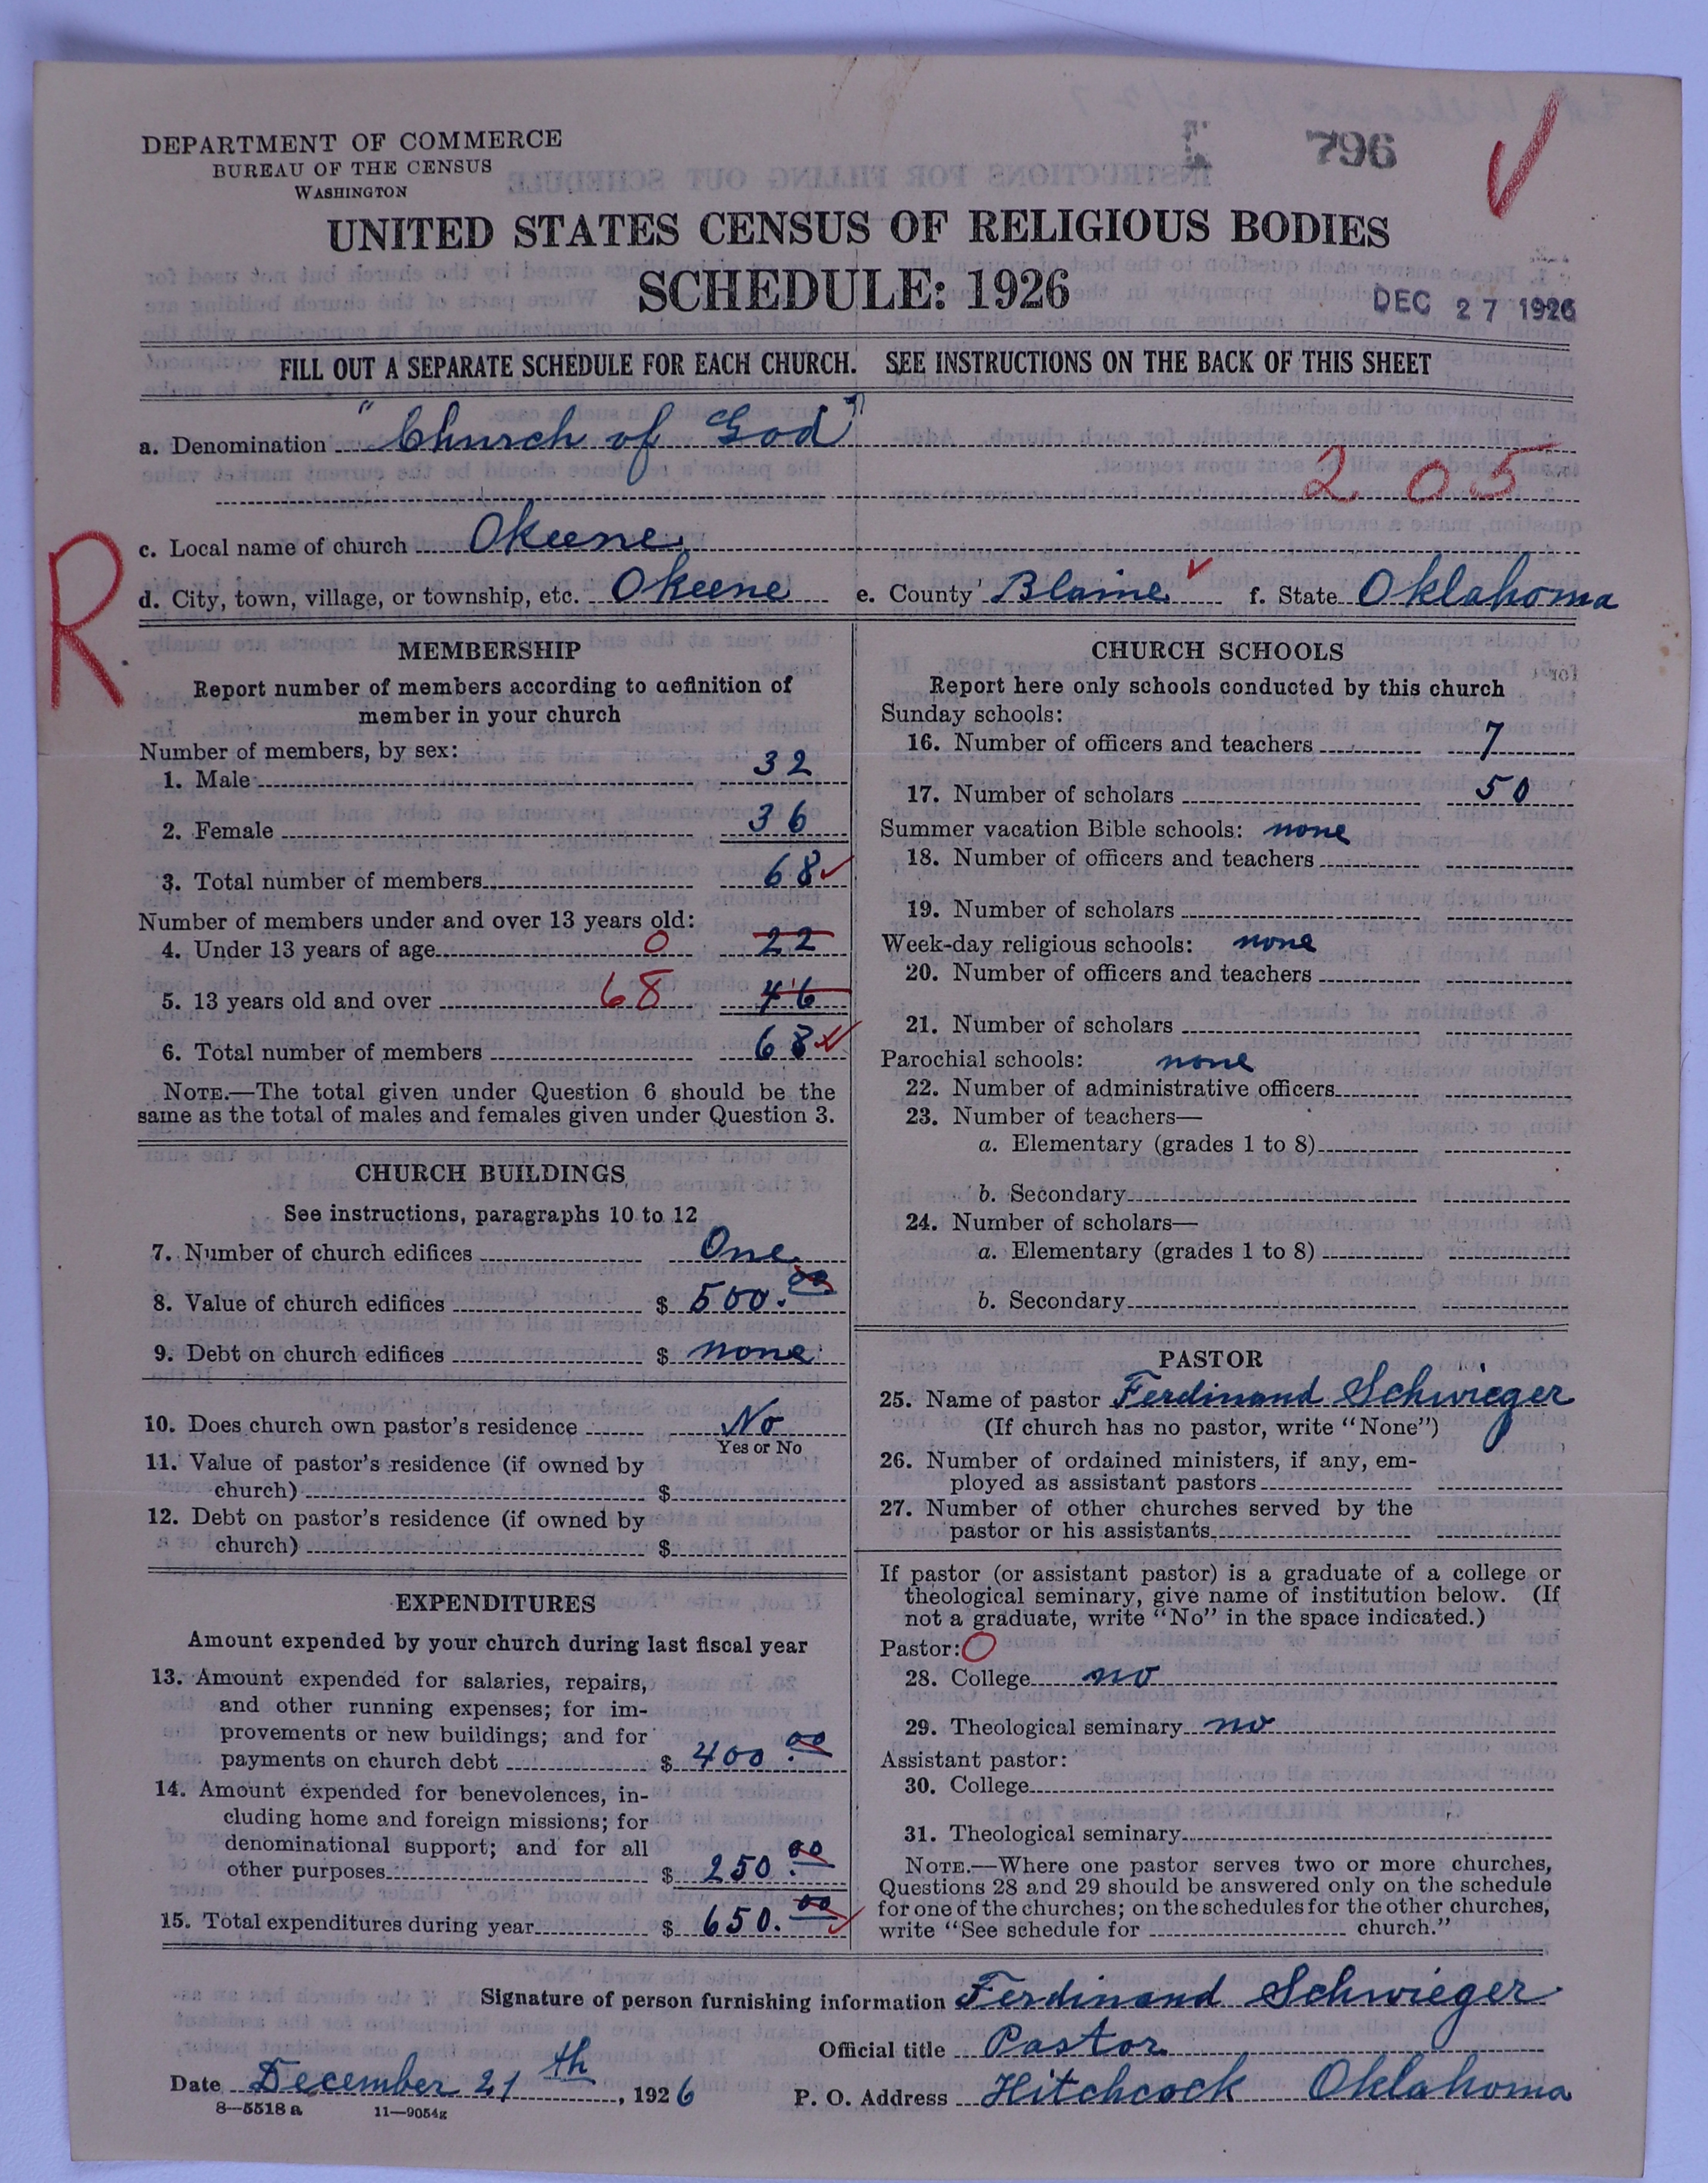 DEPARTMENT OF COMMERCE
BUREAU OF THE CENSUS
WASHINGTON
1 796
UNITED STATES CENSUS OF RELIGIOUS BODIES
SCHEDULE: 1926
DEC 27 1926
FILL OUT A SEPARATE SCHEDULE FOR EACH CHURCH. SEE INSTRUCTIONS ON THE BACK OF THIS SHEET
a. Denomination "Church of God"
205
c. Local name of church Okeene
R
d. City, town, village, or township, etc. Okeene e. County Blaine f. State Oklahoma
MEMBERSHIP
Report number of members according to definition of
member in your church
Number of members, by sex:
1. Male 32
2. Female 36
3. Total number of members 68
Number of members under and over 13 years old:
4. Under 13 years of age 0 22
5. 13 years old and over 68 46
6. Total number of members 68
NOTE.—The total given under Question 6 should be the
same as the total of males and females given under Question 3.
CHURCH BUILDINGS
See instructions, paragraphs 10 to 12
7. Number of church edifices One
8. Value of church edifices $ 500.00
9. Debt on church edifices $ none
10. Does church own pastor's residence No
Yes or No
11. Value of pastor's residence (if owned by
church) $
12. Debt on pastor's residence (if owned by
church) $
EXPENDITURES
Amount expended by your church during last fiscal year
13. Amount expended for salaries, repairs,
and other running expenses; for im-
provements or new buildings; and for
payments on church debt $ 400.00
14. Amount expended for benevolences, in-
cluding home and foreign missions; for
denominational support; and for all
other purposes $ 250.00
15. Total expenditures during year $ 650.00
CHURCH SCHOOLS
Report here only schools conducted by this church
Sunday schools:
16. Number of officers and teachers 7
17. Number of scholars 50
Summer vacation Bible schools: none
18. Number of officers and teachers
19. Number of scholars
Week-day religious schools: none
20. Number of officers and teachers
21. Number of scholars
Parochial schools: none
22. Number of administrative officers
23. Number of teachers—
a. Elementary (grades 1 to 8)
b. Secondary
24. Number of scholars—
a. Elementary (grades 1 to 8)
b. Secondary
PASTOR
25. Name of pastor Ferdinand Schwieger
(If church has no pastor, write "None")
26. Number of ordained ministers, if any, em-
ployed as assistant pastors
27. Number of other churches served by the
pastor or his assistants
If pastor (or assistant pastor) is a graduate of a college or
theological seminary, give name of institution below. (If
not a graduate, write "No" in the space indicated.)
Pastor: 0
28. College no
29. Theological seminary no
Assistant pastor:
30. College
31. Theological seminary
NOTE.—Where one pastor serves two or more churches,
Questions 28 and 29 should be answered only on the schedule
for one of the churches; on the schedules for the other churches,
write "See schedule for church."
Signature of person furnishing information Ferdinand Schwieger
Official title Pastor
Date December 21th, 1926 P. O. Address Hitchcock Oklahoma
8—5518 a 11—9054g